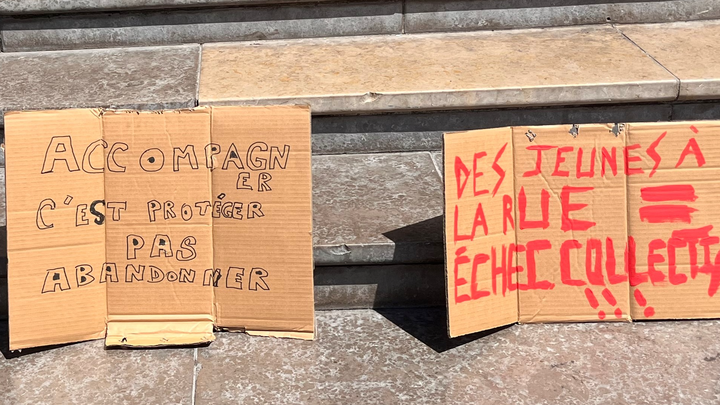 ACCOMPAGN
ER
C'EST PROTÉGER
PAS
ABANDONNER
DES JEUNES À
LA RUE =
ÉCHEC COLLECTI
!!!